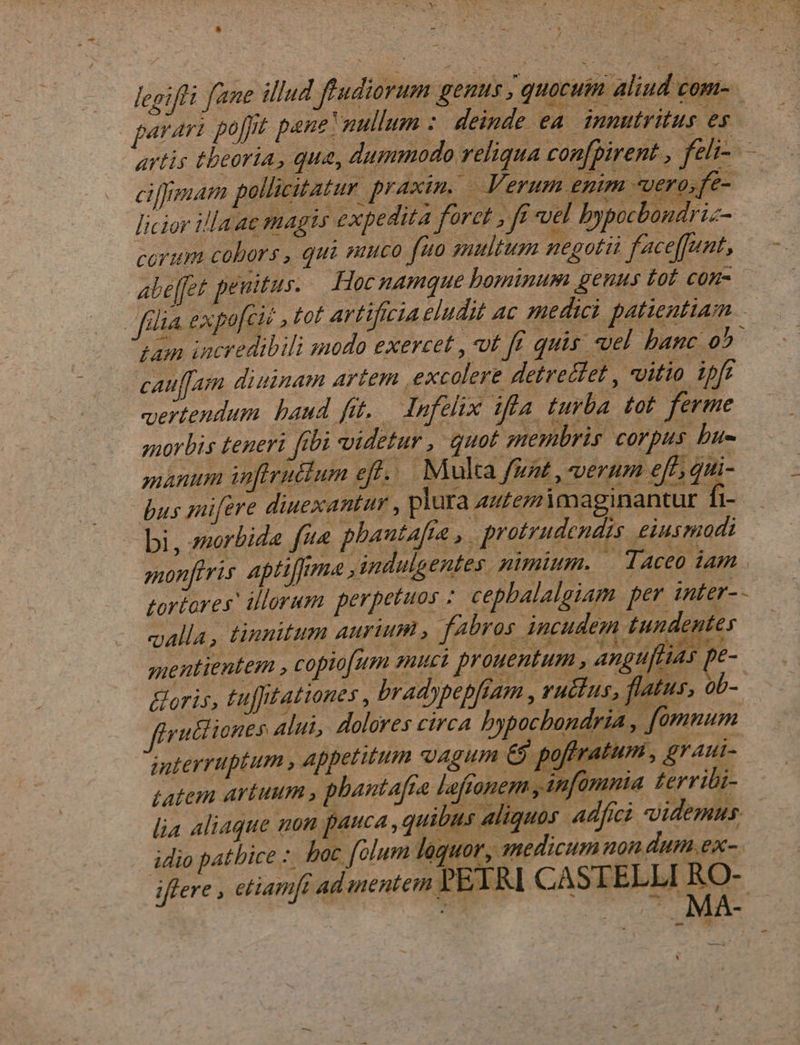 legiſti ſane illud ſtudiorum genus, quocum aliud com-
parari poſſit pene nullum: deinde ea innutritus es
artis theoria, quæ, dummodo reliqua conſpirent, feli-
ciſſimam pollicitatur praxin. Verum enim vero, fe-
licior illa ac magis expedita foret, ſi vel hypochondria-
corum cohors, qui muco ſuo multum negotii faceſſunt,
abeſſet penitus. Hoc namque hominum genus tot con-
ſilia expoſcit, tot artificia eludit ac medici patientiam
tam incredibili modo exercet, vt ſi quis vel hanc ob
cauſſam diuinam artem excolere detrectet, vitio ipſi
vertendum haud ſit. Infelix iſta turba tot ferme
morbis teneri ſibi videtur, quot membris corpus hu-
manum inſtructum eſt. Multa ſunt, verum eſt, qui-
bus miſere diuexantur, plura autem imaginantur ſi-
bi, morbidæ ſuæ phantaſiæ, protrudendis eiusmodi
monſtris aptiſſimæ, indulgentes nimium. Taceo iam
tortores illorum perpetuos: cephalalgiam per inter-
valla, tinnitum aurium, fabros incudem tundentes
mentientem, copioſum muci prouentum, anguſtias pe-
ctoris, tuſſitationes, bradypepſiam, ructus, flatus, ob-
ſtructiones alui, dolores circa hypochondria, ſomnum
interruptum, appetitum vagum & poſtratum, graui-
tatem artuum, phantaſiæ læſionem, inſomnia terribi-
lia aliaque non pauca, quibus aliquos adfici videmus
idiopathice: hoc ſolum loquor, medicum non dum ex-
iſtere, etiamſi ad mentem PETRI CASTELLI RO-
MA-